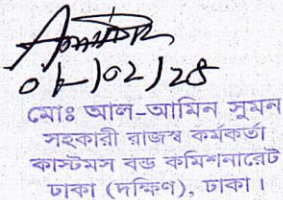 ০৮/০2/২৪
মোঃ আল-আমিন সুমন
সহকারী রাজস্ব কর্মকর্তা
কাস্টমস বন্ড কমিশনারেট
ঢাকা (দক্ষিণ), ঢাকা।